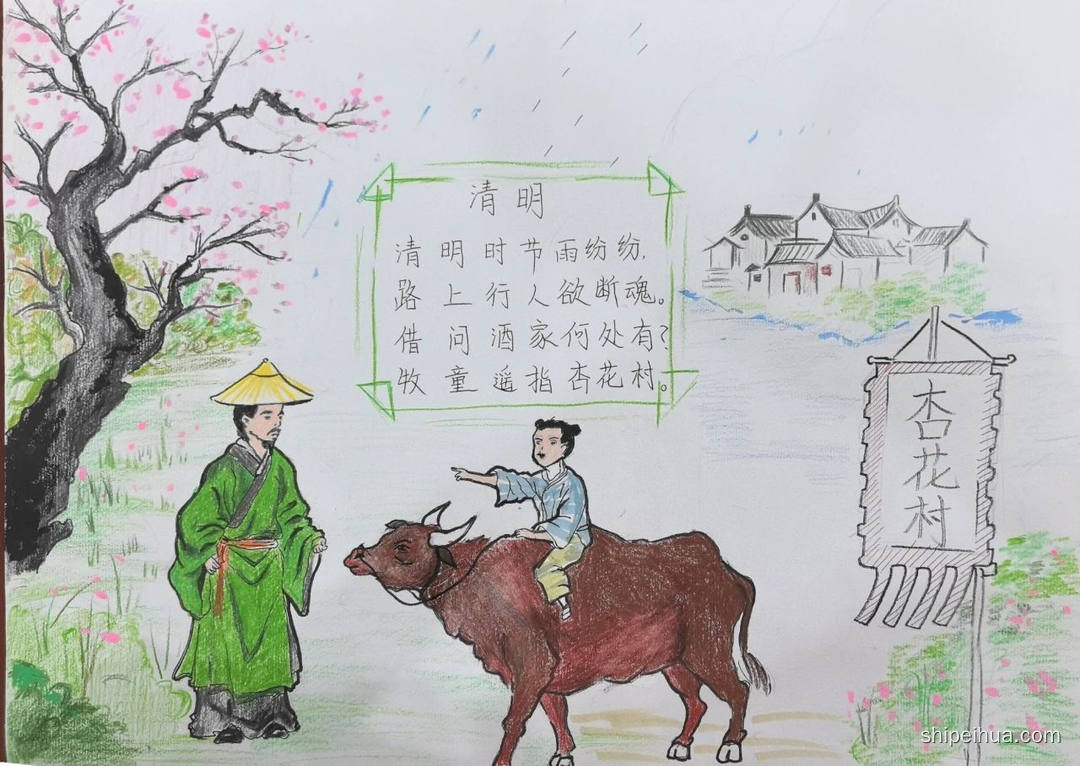 清明
清明时节雨纷纷,
路上行人欲断魂。
借问酒家何处有?
牧童遥指杏花村。
杏花村
shipeihua.com